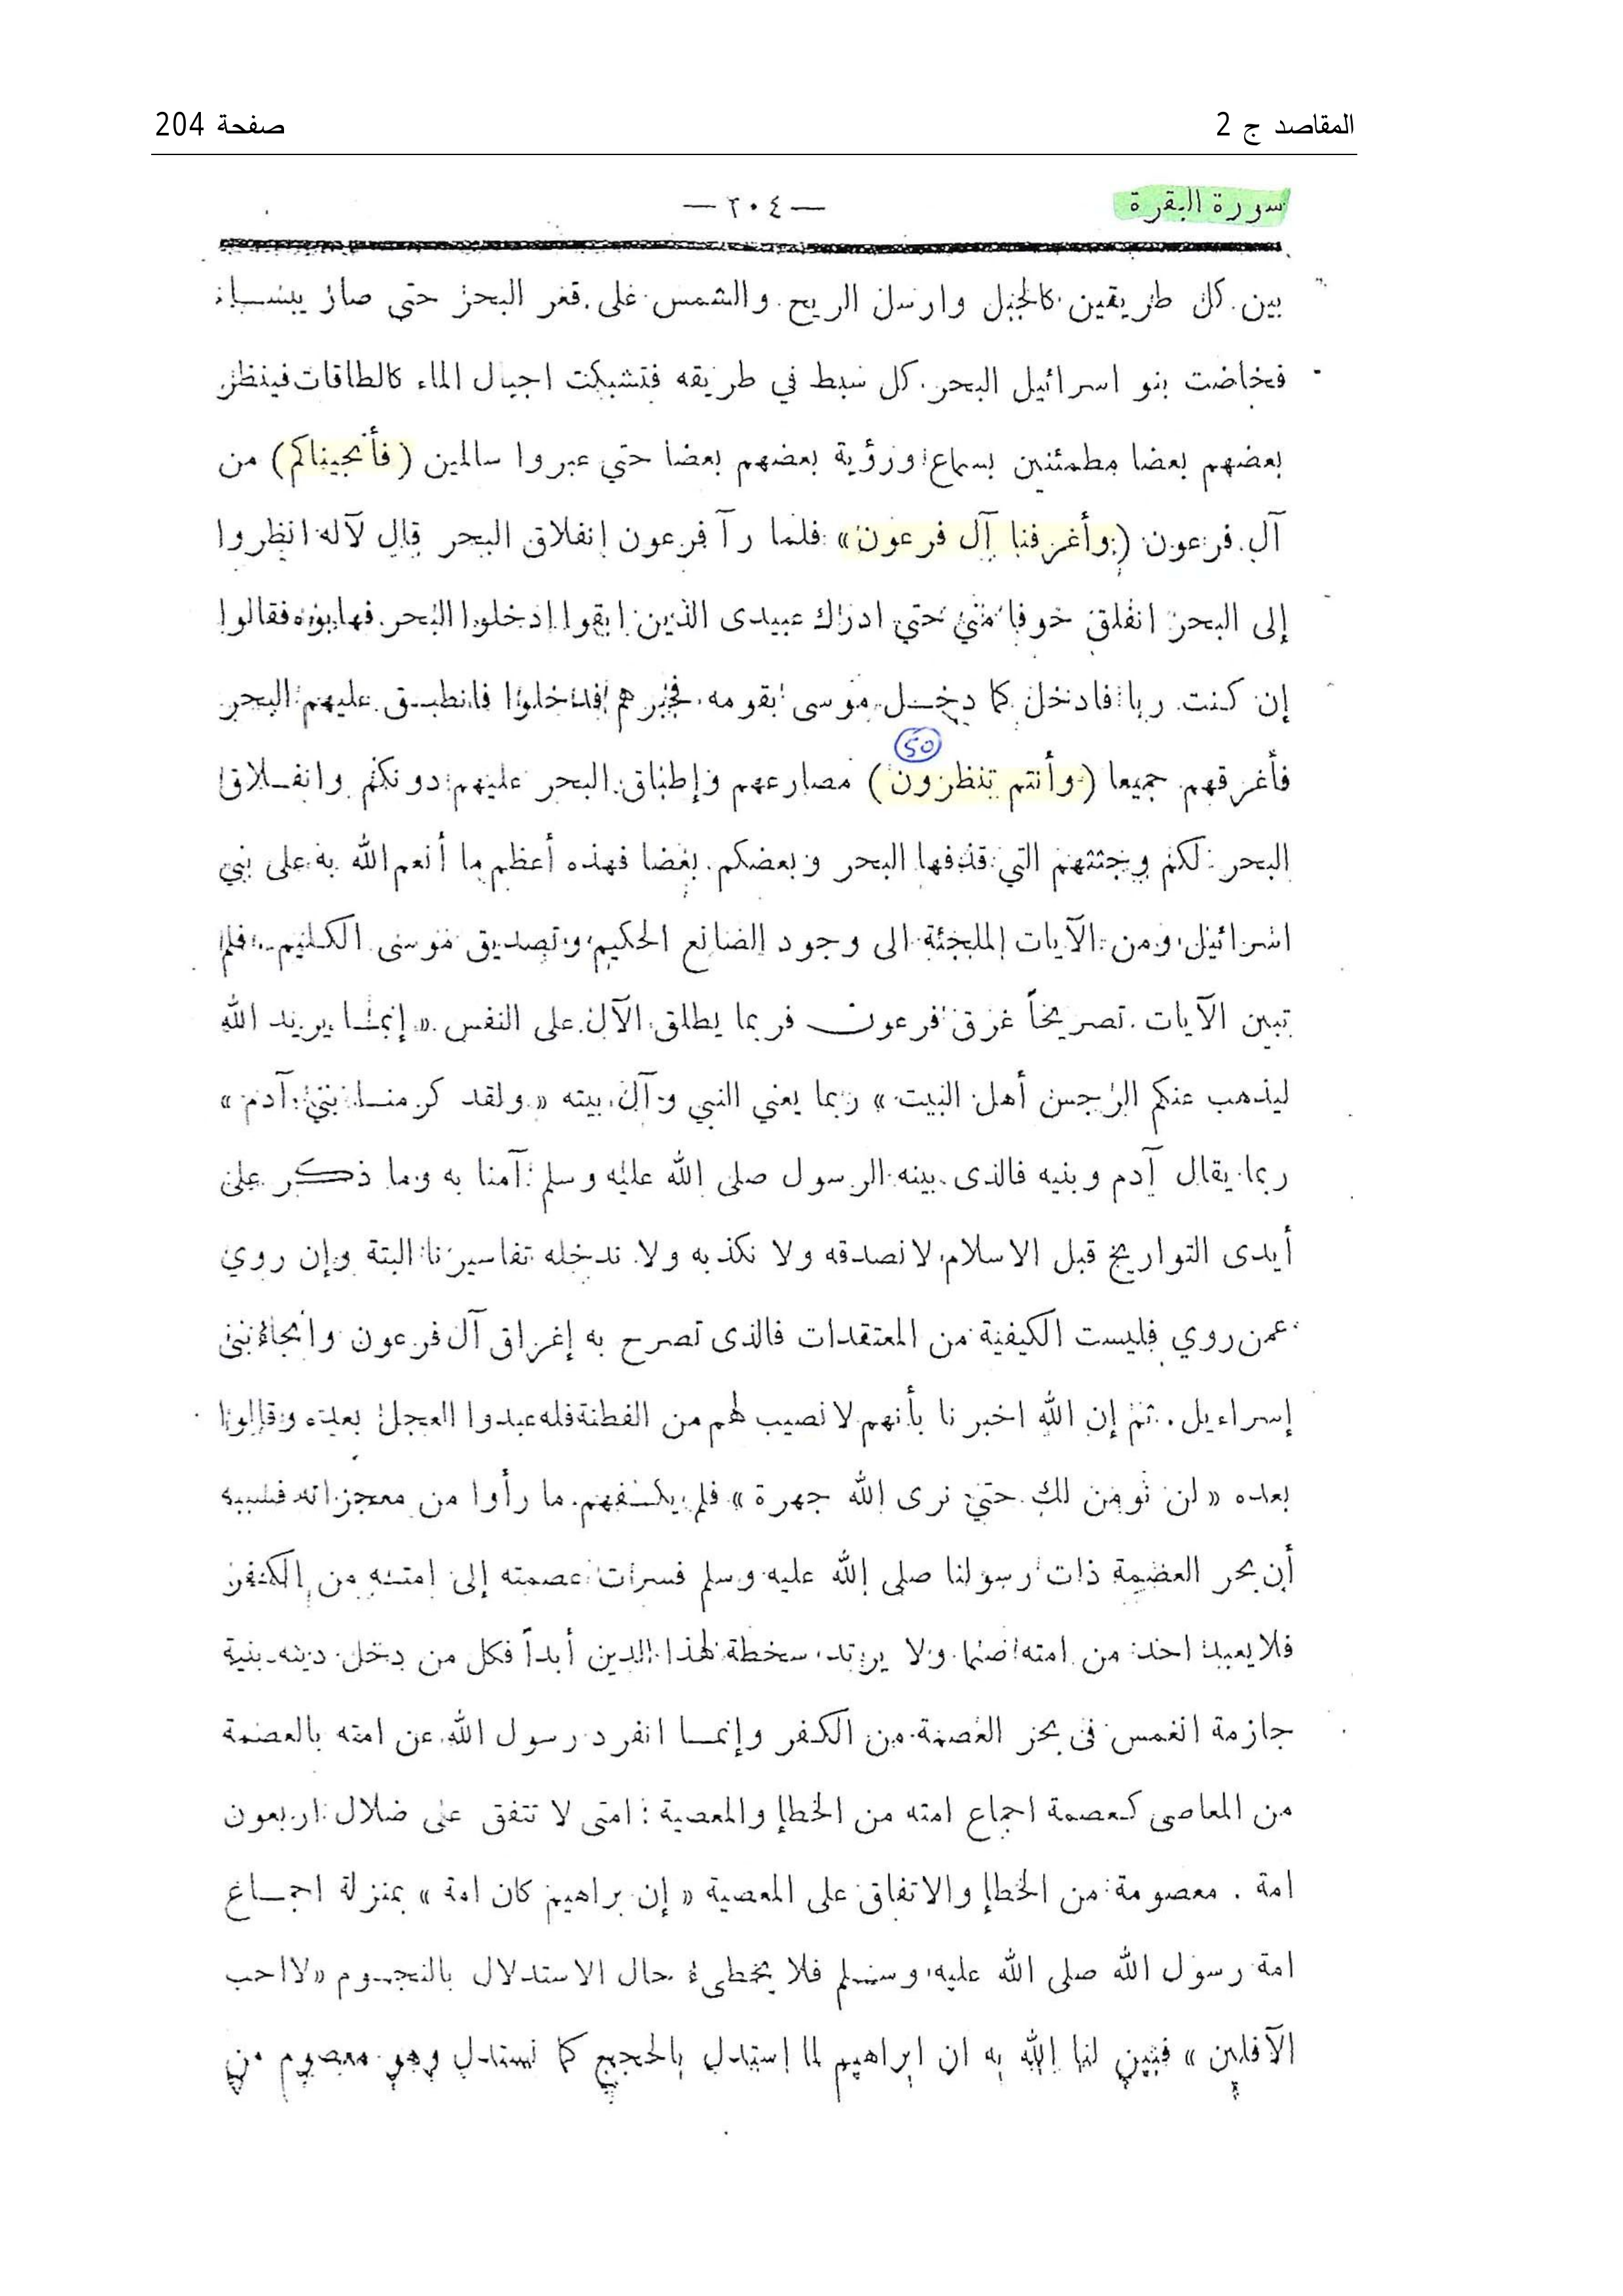 المقاصد ج 2
صفحة 204
سورة البقرة
— ٢٠٤ —
بين كل طريقين كالجبل وارسل الريح والشمس على قعر البحر حتى صار يبسا
فخاضت بنو اسرائيل البحر كل سبط في طريقه فتشبكت اجبال الماء كالطاقات فينظر
بعضهم بعضا مطمئنين بسماع ورؤية بعضهم بعضا حتي عبروا سالمين (فأنجيناكم) من
آل فرعون (وأغرقنا آل فرعون» فلما رآ فرعون إنفلاق البحر قال لآله انظروا
إلى البحر انفلق خوفا مني حتي ادراك عبيدى الذين ابقوا ادخلوا البحر فهابوه فقالوا
إن كنت ربا فادخل كما دخـل موسى بقومه فجبرهم فدخلوا فانطبـق عليهم البحر
50
فأغرقهم جميعا (وأنتم تنظرون) مصارعهم وإطباق البحر عليهم دونكم وانفـلاق
البحر لكم وجثثهم التي قذفها البحر وبعضكم بعضا فهذه أعظم ما أنعم الله به على بني
اسرائيل ومن الآيات الملجئة الى وجود الصانع الحكيم وتصديق موسى الكليم فلم
تبين الآيات تصريحاً غرق فرعون فربما يطلق الآل على النفس «إنمـا يريد الله
ليذهب عنكم الرجس أهل البيت» ربما يعني النبي وآل بيته «ولقد كرمنـا بني آدم»
ربما يقال آدم وبنيه فالذى بينه الرسول صلى الله عليه وسلم آمنا به وما ذكر على
أيدى التواريخ قبل الاسلام لا نصدقه ولا نكذبه ولا ندخله تفاسيرنا البتة وإن روي
عمن روي فليست الكيفية من المعتقدات فالذى تصرح به إغراق آل فرعون وانجاء بني
إسراءيل . ثم إن الله اخبرنا بأنهم لا نصيب لهم من الفطنة فله عبدوا العجل بعده وقالوا
بعده «لن نومن لك حتي نرى الله جهرة» فلم يكـفهم ما رأوا من معجزاته فسببه
أن بحر العضمة ذات رسولنا صلى الله عليه وسلم فسرات عصمته إلى امتـه من الكفر
فلا يعبد احد من امته صنما ولا يرتد سخطة لهذا الدين أبداً فكل من دخل دينه بنية
جازمة انغمس فى بحر العصمة من الكفر وإنمـا انفرد رسول الله عن امته بالعصمة
من المعاصى كعصمة اجماع امته من الخطإ والمعصية : امتى لا تتفق على ضلال اربعون
امة . معصومة من الخطإ والاتفاق على المعصية «إن براهيم كان امة» بمنزلة اجمـاع
امة رسول الله صلى الله عليه وسلم فلا يخطىء حال الاستدلال بالنجوم «لا احب
الآفلين» فتبين لنا الله به ان ابراهيم لما إستدل بالحجج كما نستدل وهو معصوم من